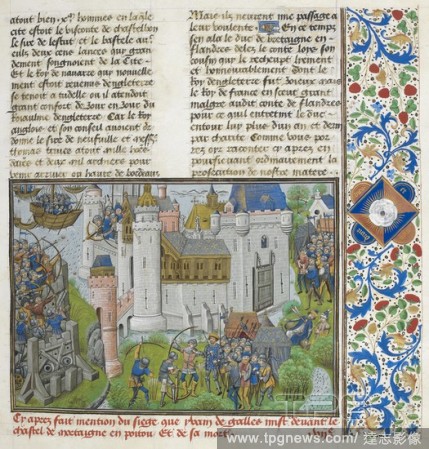 auoit bien .xx. hommes en la dicte
cite estoit le visconte de chastelbon
le sire de lescut et le bascle auec
eulx deux cens lances qui gran
dement songnoient de la Cite
Et le Roy de nauarre qui nouvelle
ment estoit reuenu dengleterre
se tenoit a tudelle ou il attendoit
grant confort de Jour en Jour du
Royaulme dengleterre Car le Roy
anglois et son conseil auoient or
donne le sire de neufuille et messire
thomas
et deux mil archiers pour
venir arriuer au haure de bordeaux
Mais ilz neurent nul passage a
leur voulente En ce temps
sen ala le duc de bretaigne en
flandres deles le conte loys son
cousin qui le recheupt lyement
et honnourablement dont le
Roy dengleterre fut Joieux mais
le Roy de france en sceut grant
malgre audit conte de flandres
pour ce quil entretint le duc
entour luy plus dun an et demy
par charite Comme vous por
rez oyr raconter cy apres en
poursieuant ordonneement la
prosecution de nostre matere
Cy apres fait mention du siege que yuain de galles mist deuant le
chastel de mortaigne en poitou Et de sa mort
www.tpgnews.com / 達志影像